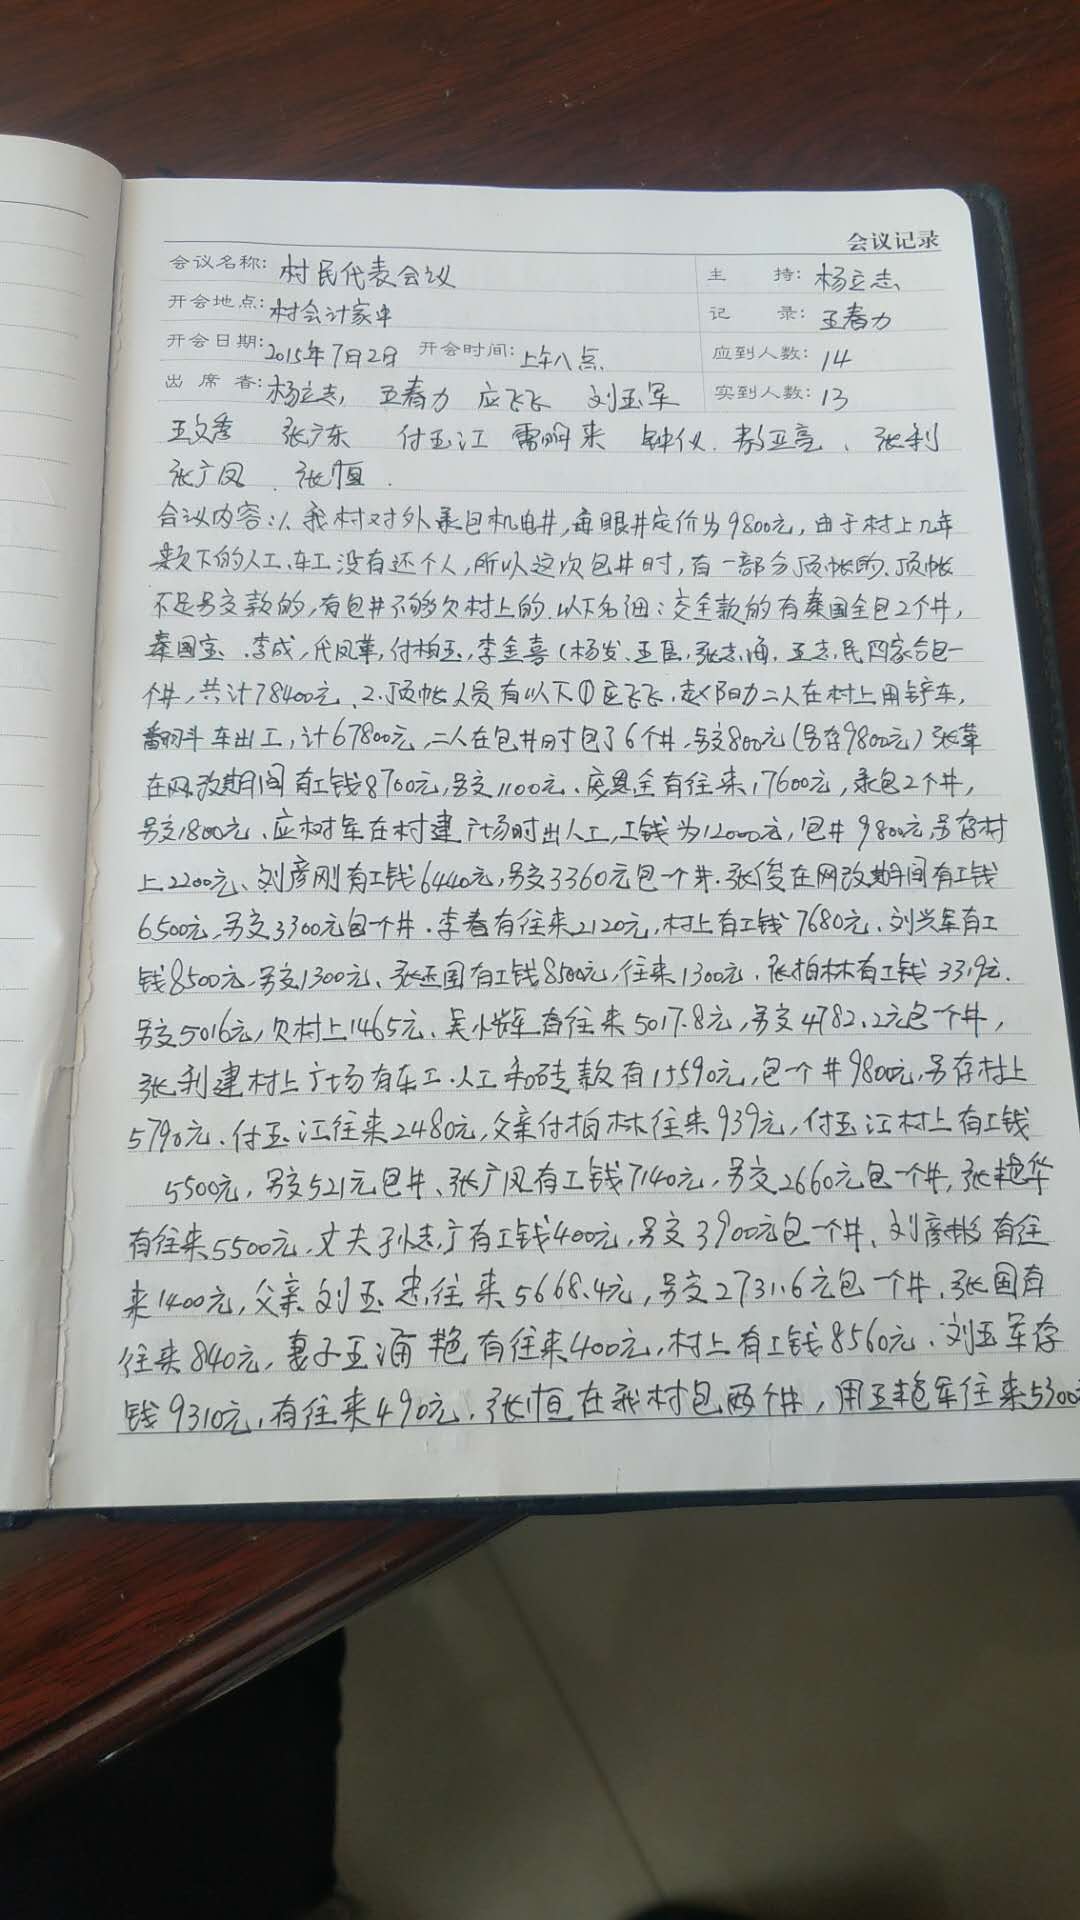 会议记录
会议名称: 村民代表会议 主 持: 杨立志
开会地点: 村会计家中 记 录: 王春力
开会日期: 2015年7月2日 开会时间: 上午八点 应到人数: 14
出 席 者: 杨立志, 王春力 应飞飞 刘玉军 实到人数: 13
王文秀 张广东 付玉江 雷明来 钟仪. 敖亚亮、张利
张广凤、张恒.
会议内容:1、我村对外承包机电井,每眼井定价为9800元,由于村上几年
来欠下的人工、车工没有还个人,所以这次包井时,有一部分顶帐的、顶帐
不足另交款的,有包井不够欠村上的.以下名细:交全款的有秦国全包2个井,
秦国宝、李成,代凤革,付柏玉,李金喜(杨发、王臣、张志海、王志民四家合包一
个井,共计78400元、2、顶帐人员有以下①应飞飞、赵阳力二人在村上用铲车,
翻斗车出工,计67800元,二人在包井时包了6个井,另交800元(另存9800元)张革
在网改期间有工钱8700元,另交1100元、庞恩全有往来17600元,承包2个井,
另交1800元、应树军在村建广场时出人工,工钱为12000元,包井9800元,另存村
上2200元、刘彦刚有工钱6440元,另交3360元包一个井.张俊在网改期间有工钱
6500元,另交3300元包一个井.李春有往来2120元,村上有工钱7680元、刘兴军有工
钱8500元,另交1300元、张玉国有工钱8500元,往来1300元.张柏林有工钱3319元.
另交5016元,欠村上1465元、吴小辉有往来5017.8元,另交4782.2元包一个井,
张利建村上广场有车工.人工和砖款有15590元,包一个井9800元,另存村上
5790元.付玉江往来2480元,父亲付柏林往来939元,付玉江村上有工钱
5500元,另交521元包井、张广凤有工钱7140元,另交2660元包一个井,张艳华
有往来5500元,丈夫孙志广有工钱400元,另交3900元包一个井、刘彦彬有往
来1400元,父亲刘玉忠往来5668.4元,另交2731.6元包一个井.张国有
往来840元,妻子王海艳有往来400元,村上有工钱8560元.刘玉军存
钱9310元,有往来490元.张恒在我村包两个井,用王艳军往来5300